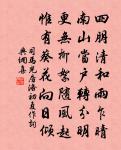 四月清和雨乍晴
南山當戶轉分明
更無柳絮隨風起
惟有葵花向日傾
司馬光居洛初夏作詞
與調喜